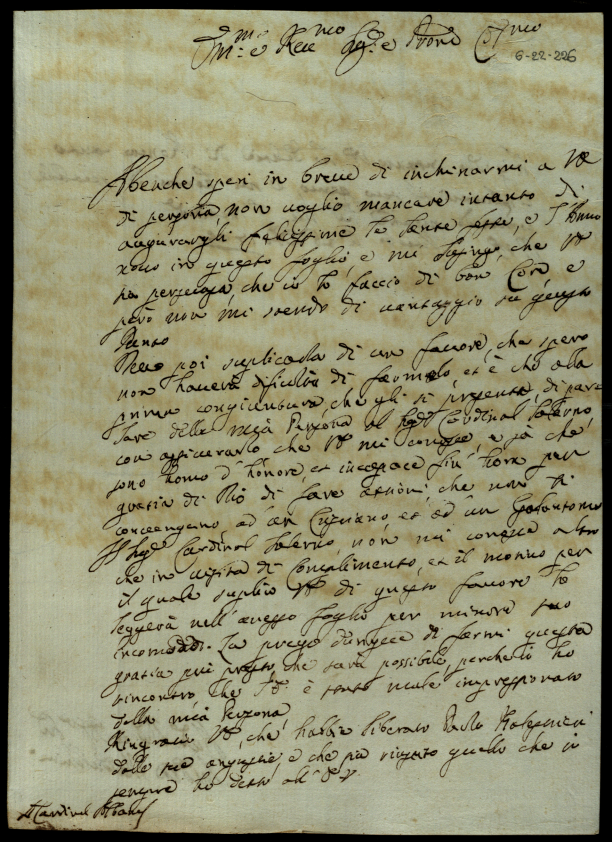 Em.mo e Rev.mo Sig.re e Prone Col.mo
6-22-226
Abenche speri in breve di inchinarmi a VE
di persona, non voglio mancare intanto di
augurargli felicissime le sante feste, e l'Anno
novo in questo foglio, e mi lusingo che VE
sia persuasa, che io lo faccio di bon Core e
però non mi stendo di vantaggio su questo
Punto
poi suplicarla di un favore, che spero
non haverà dificultà di farmelo, et è che alla
prima congiuntura, che gli si presenta, di par
lare della mia Persona al Sig.r Cardinal Salerno,
con assicurarlo che VE mi conosce, e sa che
sono homo d'honore, et incapace fin'hora per
gratia di Dio di fare attioni, che non si
convengano ad un Cristiano, et ad un Galantomo
Il Sig.r Cardinal Salerno non mi conosce altro
che in visita di Complimento, et il motivo per
il quale suplico VE di questo favore lo
leggerà nell'annesso foglio per minore suo
incomodo. La prego dunque di farmi questa
gratia più presto, che sarà possibile, perche io ho
rincontro che S.E. è tanto male impressionato
della mia Persona
Ringratio VE, che habbia liberato Paolo
dalle sue angustie, e che sia riuscito quello che io
sempre ho detto all'
Cardinal Albani